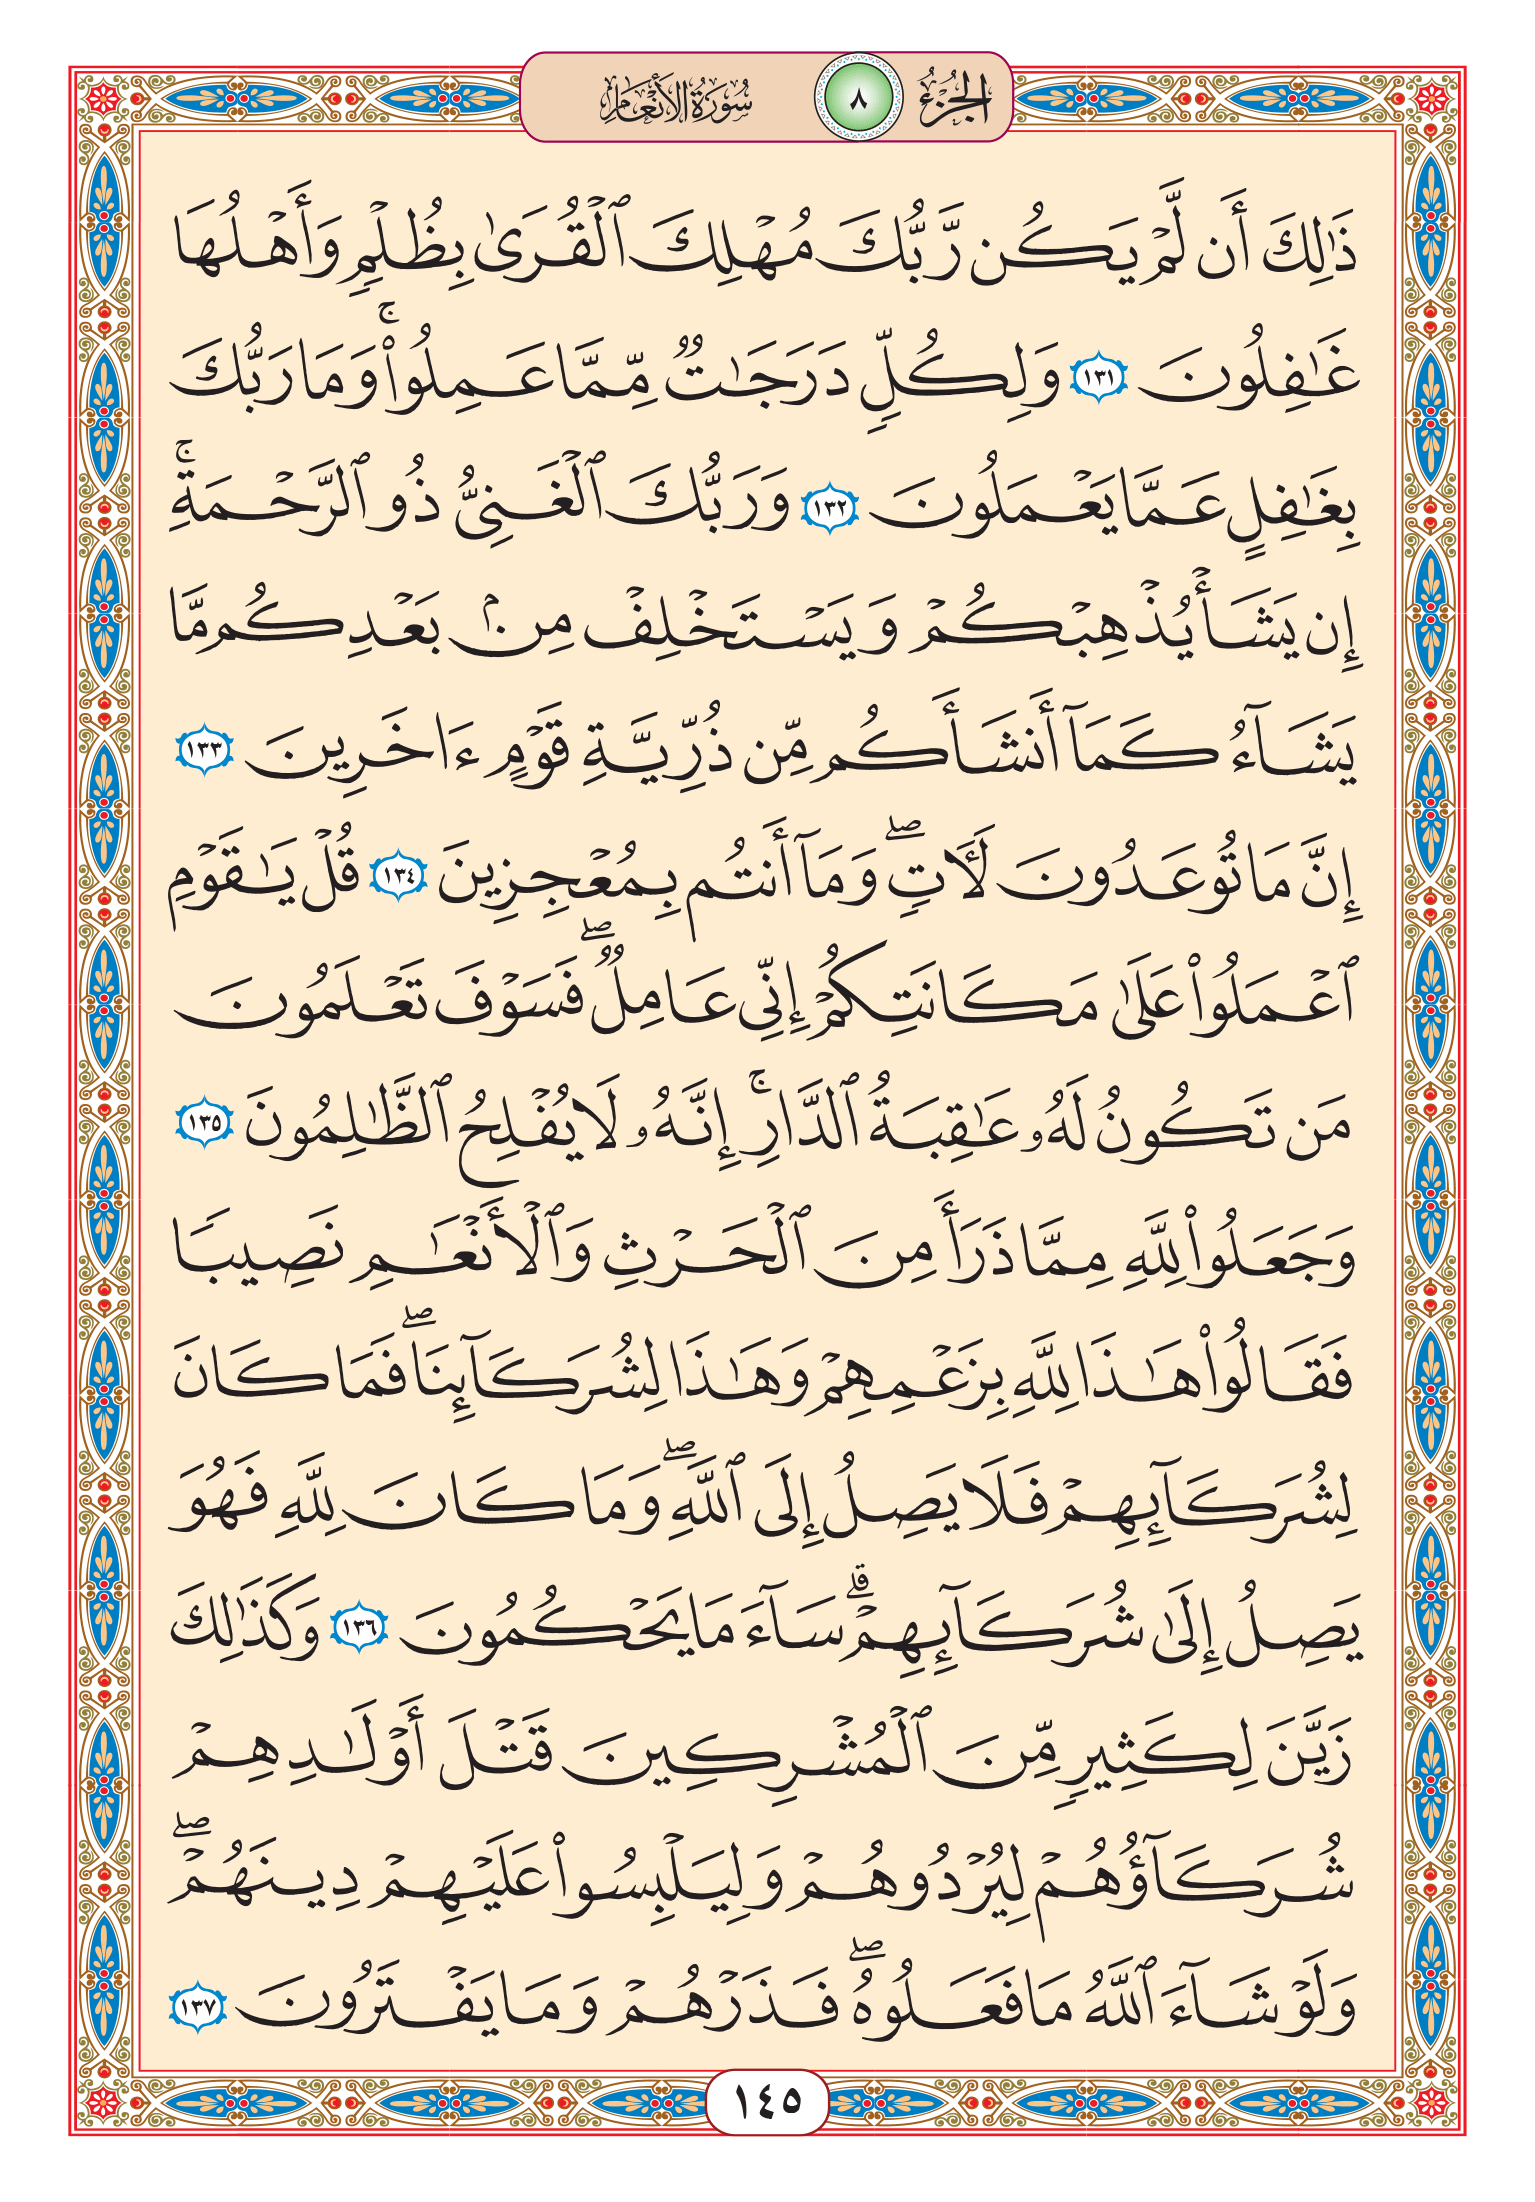 الجزء ٨ سورة الأنعام
ذَٰلِكَ أَن لَّمْ يَكُن رَّبُّكَ مُهْلِكَ ٱلْقُرَىٰ بِظُلْمٍ وَأَهْلُهَا
غَٰفِلُونَ ١٣١ وَلِكُلٍّ دَرَجَٰتٌ مِّمَّا عَمِلُوا۟ ۚ وَمَا رَبُّكَ
بِغَٰفِلٍ عَمَّا يَعْمَلُونَ ١٣٢ وَرَبُّكَ ٱلْغَنِىُّ ذُو ٱلرَّحْمَةِ ۚ
إِن يَشَأْ يُذْهِبْكُمْ وَيَسْتَخْلِفْ مِنۢ بَعْدِكُم مَّا
يَشَآءُ كَمَآ أَنشَأَكُم مِّن ذُرِّيَّةِ قَوْمٍ ءَاخَرِينَ ١٣٣
إِنَّ مَا تُوعَدُونَ لَـَٔاتٍ ۖ وَمَآ أَنتُم بِمُعْجِزِينَ ١٣٤ قُلْ يَٰقَوْمِ
ٱعْمَلُوا۟ عَلَىٰ مَكَانَتِكُمْ إِنِّى عَامِلٌ ۖ فَسَوْفَ تَعْلَمُونَ
مَن تَكُونُ لَهُۥ عَٰقِبَةُ ٱلدَّارِ ۚ إِنَّهُۥ لَا يُفْلِحُ ٱلظَّٰلِمُونَ ١٣٥
وَجَعَلُوا۟ لِلَّهِ مِمَّا ذَرَأَ مِنَ ٱلْحَرْثِ وَٱلْأَنْعَٰمِ نَصِيبًا
فَقَالُوا۟ هَٰذَا لِلَّهِ بِزَعْمِهِمْ وَهَٰذَا لِشُرَكَآئِنَا ۖ فَمَا كَانَ
لِشُرَكَآئِهِمْ فَلَا يَصِلُ إِلَى ٱللَّهِ ۖ وَمَا كَانَ لِلَّهِ فَهُوَ
يَصِلُ إِلَىٰ شُرَكَآئِهِمْ ۗ سَآءَ مَا يَحْكُمُونَ ١٣٦ وَكَذَٰلِكَ
زَيَّنَ لِكَثِيرٍ مِّنَ ٱلْمُشْرِكِينَ قَتْلَ أَوْلَٰدِهِمْ
شُرَكَآؤُهُمْ لِيُرْدُوهُمْ وَلِيَلْبِسُوا۟ عَلَيْهِمْ دِينَهُمْ ۖ
وَلَوْ شَآءَ ٱللَّهُ مَا فَعَلُوهُ ۖ فَذَرْهُمْ وَمَا يَفْتَرُونَ ١٣٧
١٤٥